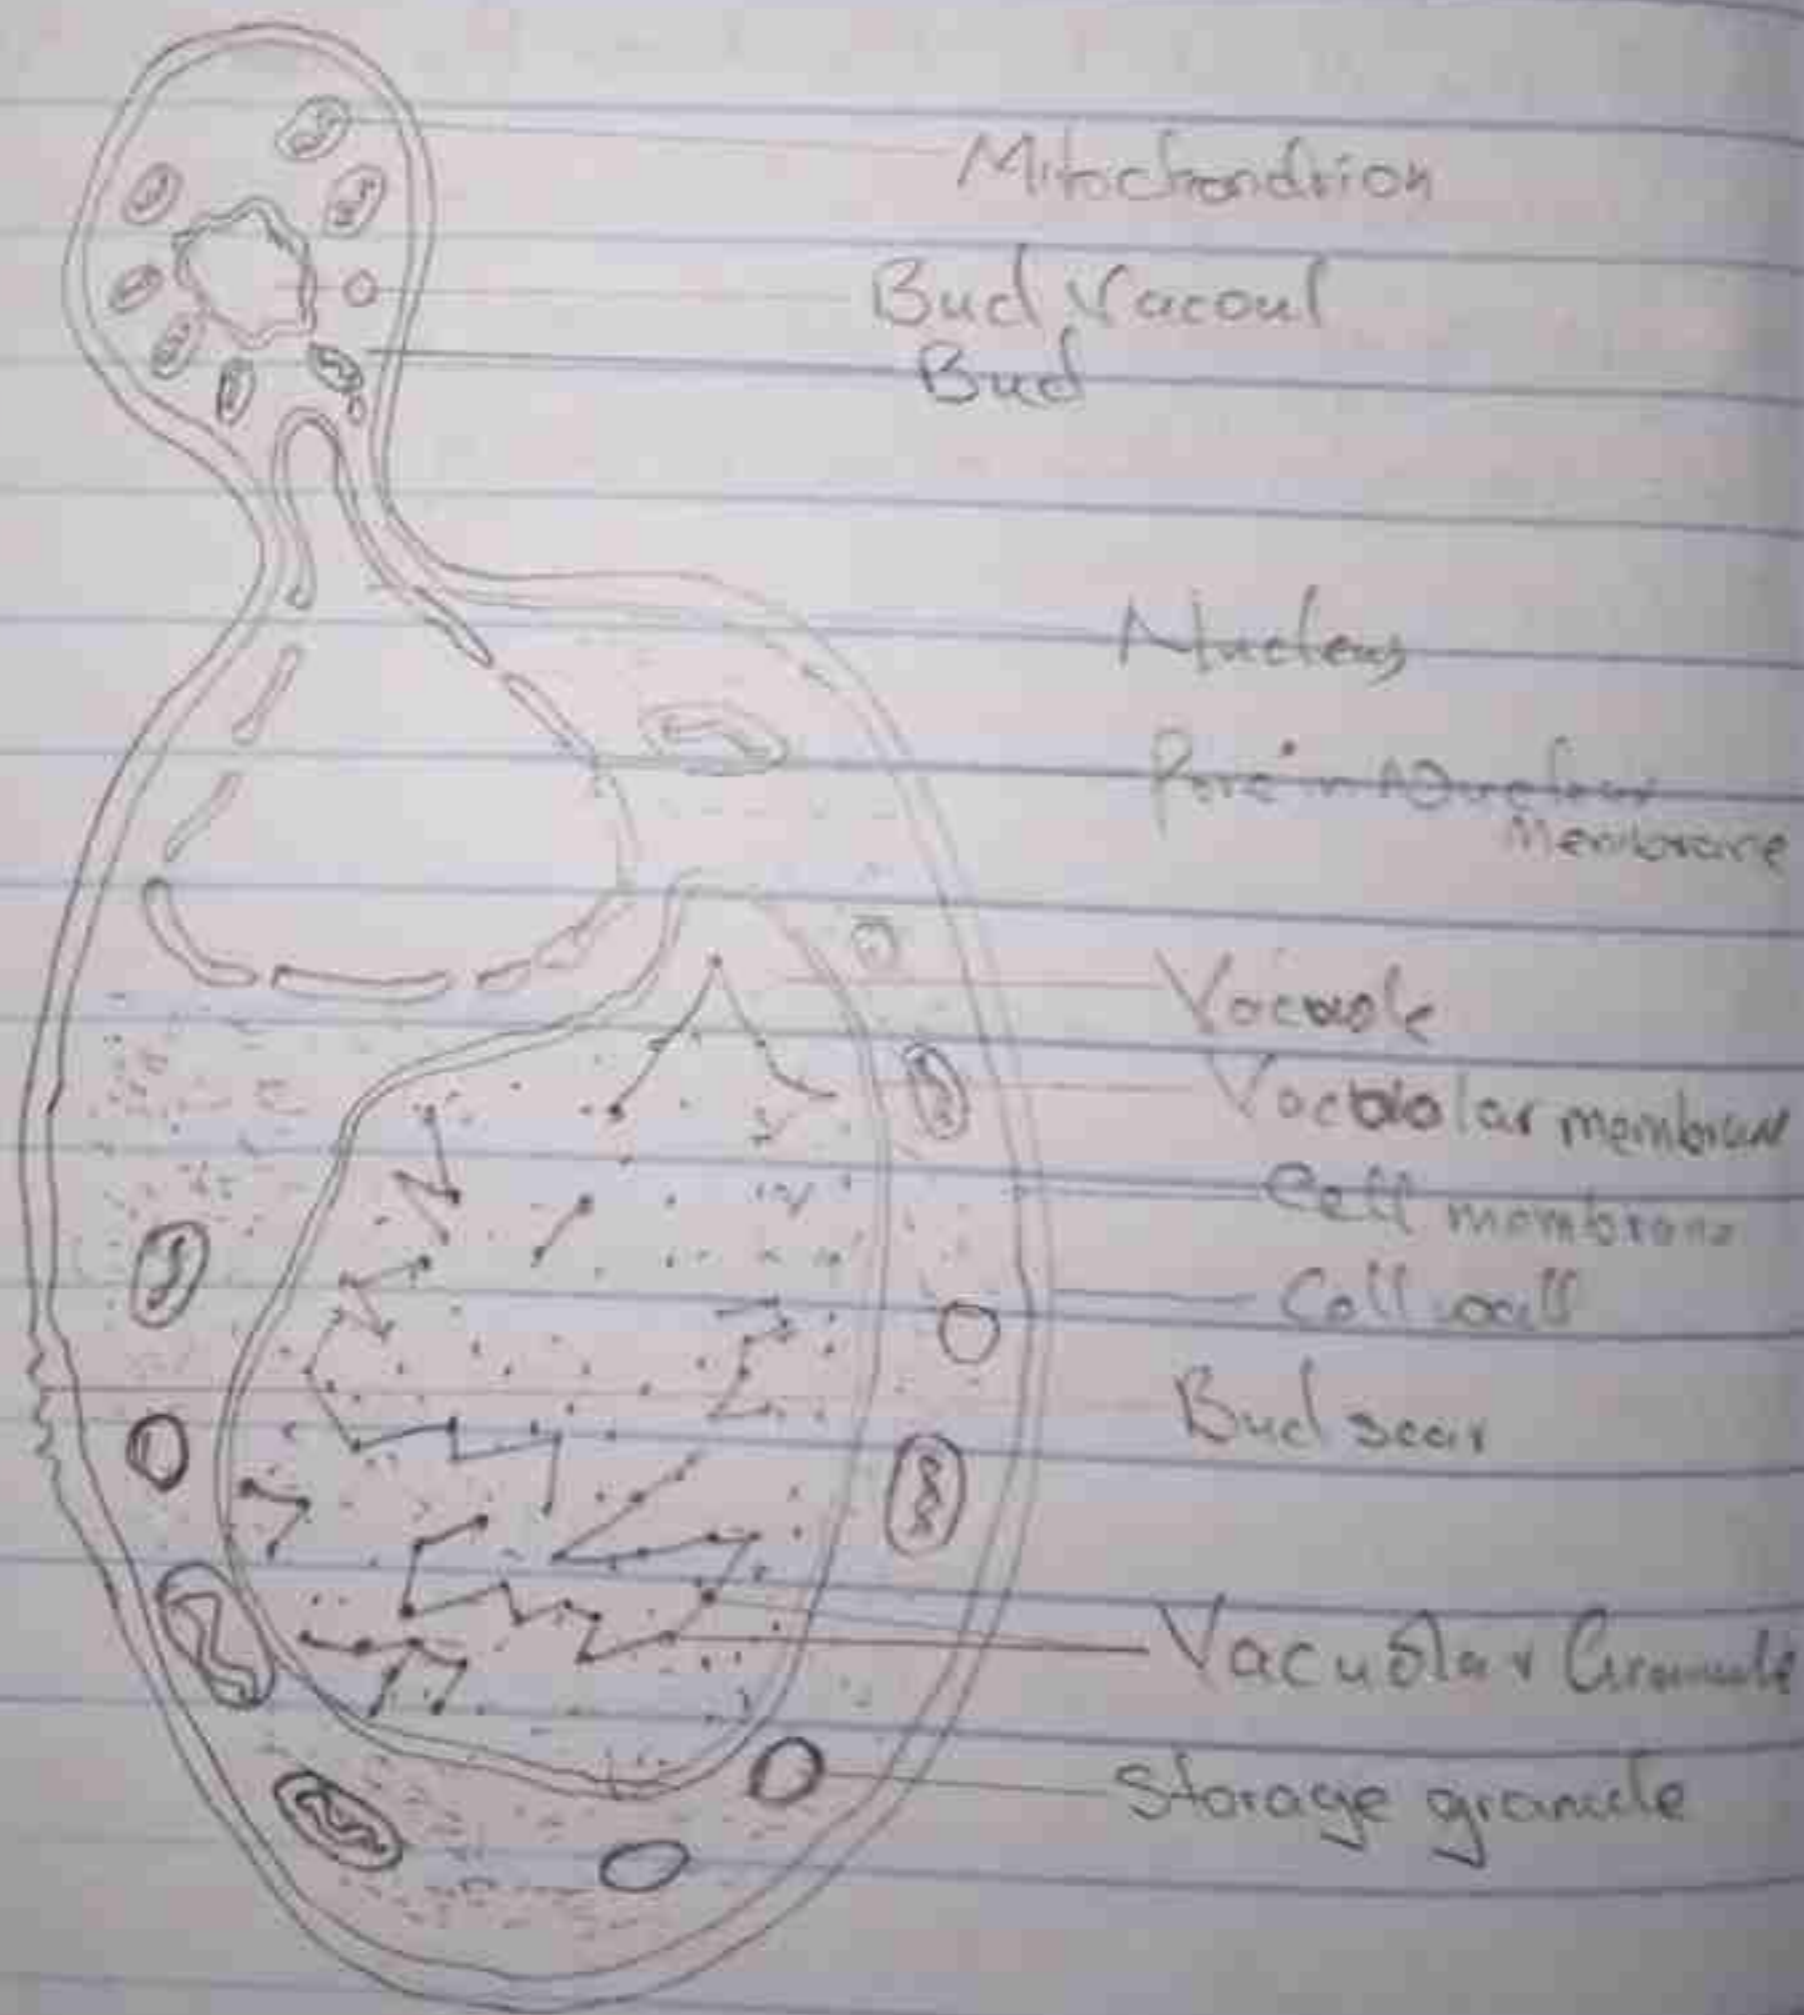 Mitochondrion
Bud Vacoul
Bud
Nucleus
Pore in Nuclear
Membrane
Vacuole
Vacuolar membrane
Cell membrane
Cell wall
Bud scar
Vacuolar Granule
Storage granule